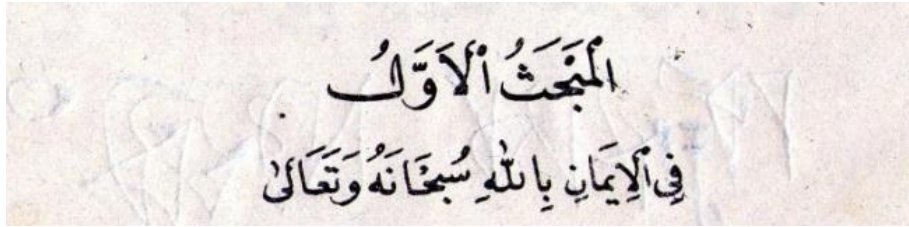 المَبْحَثُ ٱلأَوَّلُ
فِي ٱلْإِيمَانِ بِاللّٰهِ سُبْحَانَهُ وَتَعَالىٰ